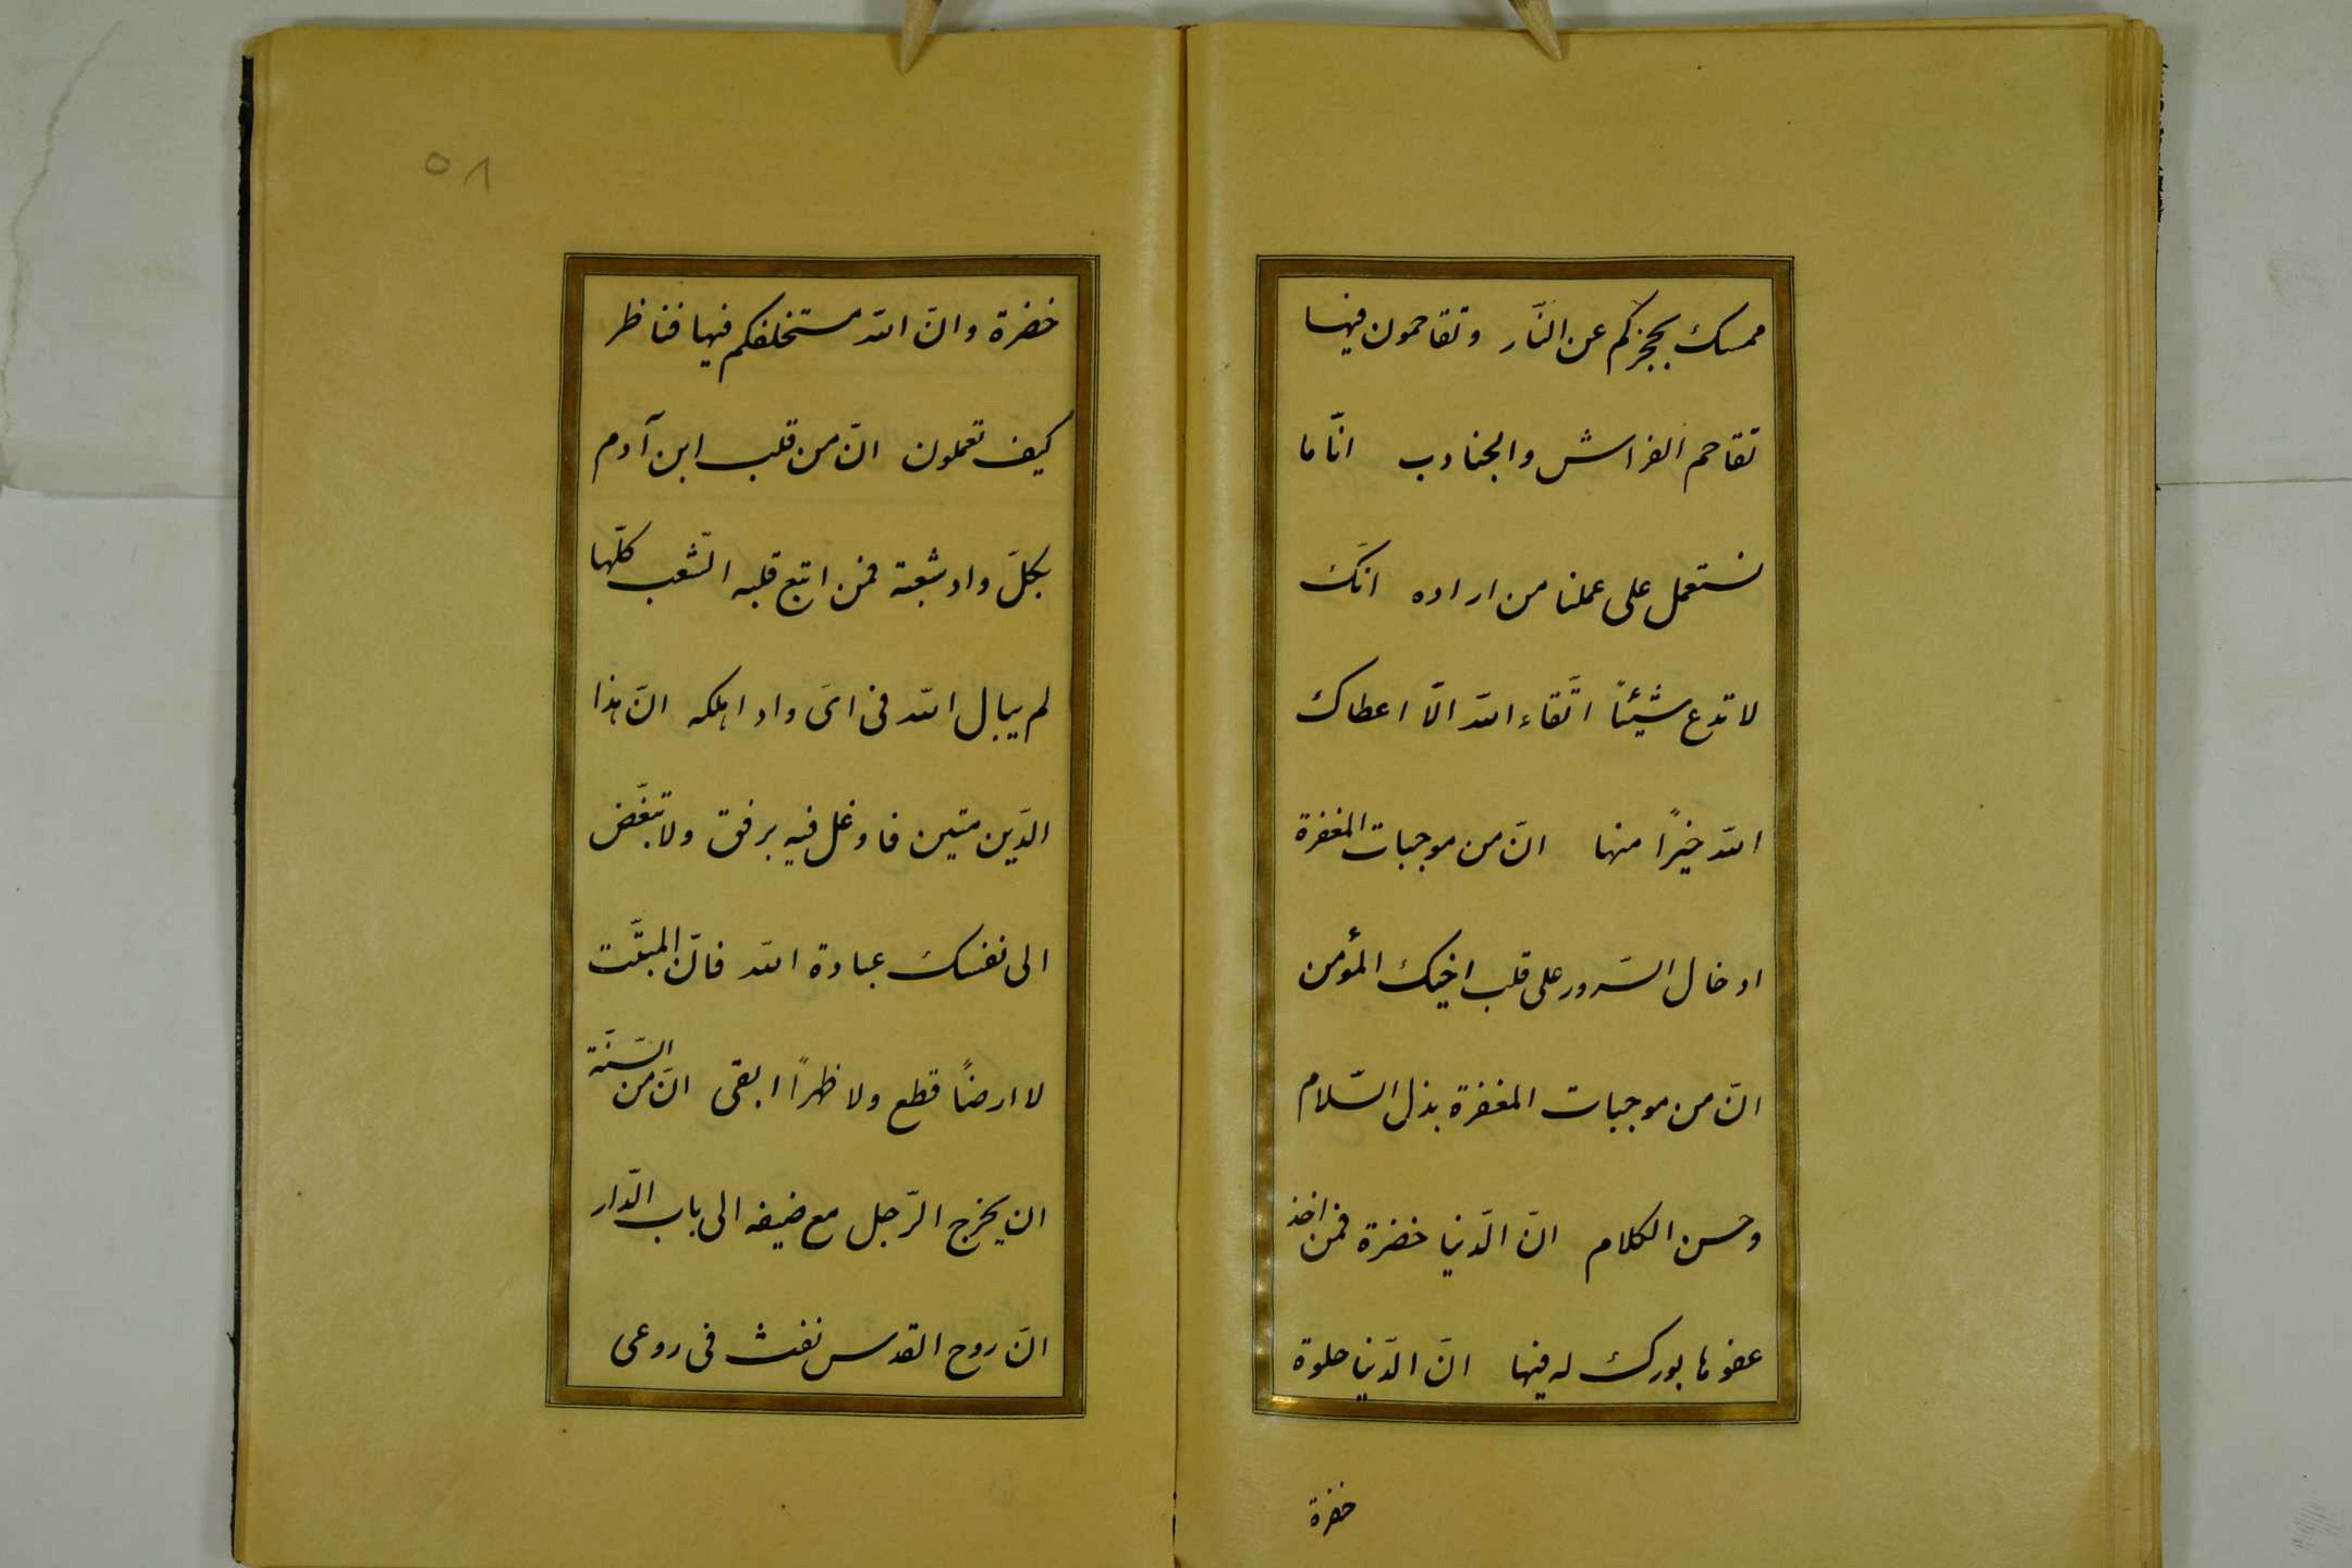 ممسك بحجزكم عن النّار وتقاحمون فيها
تقاحم الفراش والجنادب انّا ما
نستعمل على عملنا من اراده انّك
لا تدع شيئاً اتّقاء الله الّا اعطاك
الله خيرًا منها انّ من موجبات المغفرة
ادخال السّرور على قلب اخيك المؤمن
انّ من موجبات المغفرة بذل السّلام
وحسن الكلام انّ الدّنيا خضرة فمن اخذ
عفوها بورك له فيها انّ الدّنيا حلوة
خضرة
٥٨
خضرة وانّ الله مستخلفكم فيها فناظر
كيف تعملون انّ من قلب ابن آدم
بكلّ واد شعبة فمن اتبع قلبه الشّعب كلّها
لم يبال الله فى اىّ واد اهلكه انّ هذا
الدّين متين فاوغل فيه برفق ولا تبغّض
الى نفسك عبادة الله فانّ المبتّت
لا ارضاً قطع ولا ظهراً ابقى انّ من السّنّة
ان يخرج الرّجل مع ضيفه الى باب الدّار
انّ روح القدس نفث فى روعى